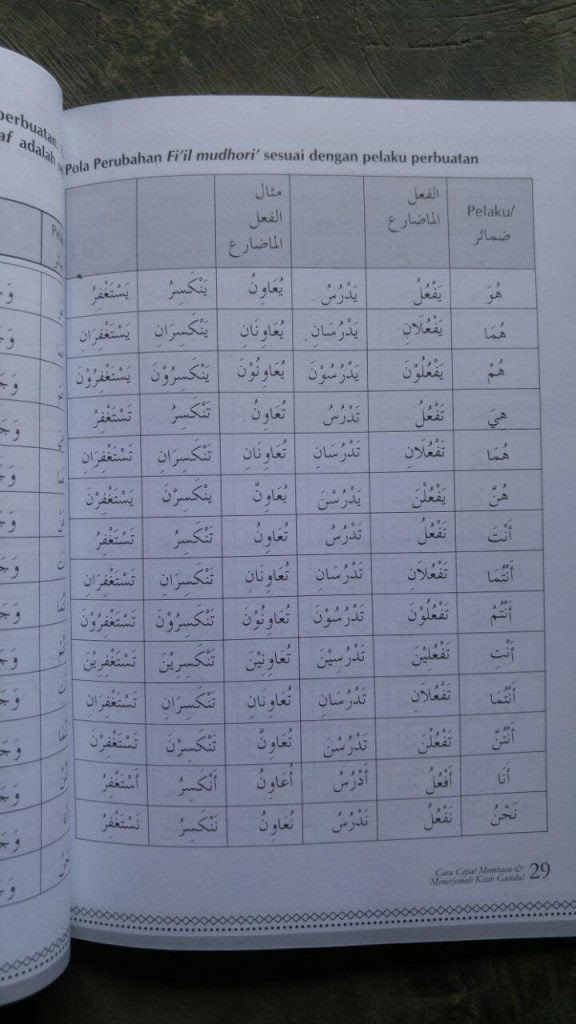 perbuatan.
af adalah
Pola Perubahan Fi'il mudhori' sesuai dengan pelaku perbuatan
Pelaku/ ضمائر الفعل الماضارع مثال الفعل الماضارع
هُوَ يَفْعُلُ يَدْرُسُ يُعَاوِنُ يَنْكَسِرُ يَسْتَغْفِرُ
هُمَا يَفْعُلَانِ يَدْرُسَانِ يُعَاوِنَانِ يَنْكَسِرَانِ يَسْتَغْفِرَانِ
هُمْ يَفْعُلُوْنَ يَدْرُسُوْنَ يُعَاوِنُوْنَ يَنْكَسِرُوْنَ يَسْتَغْفِرُوْنَ
هِيَ تَفْعُلُ تَدْرُسُ تُعَاوِنُ تَنْكَسِرُ تَسْتَغْفِرُ
هُمَا تَفْعُلَانِ تَدْرُسَانِ تُعَاوِنَانِ تَنْكَسِرَانِ تَسْتَغْفِرَانِ
هُنَّ يَفْعُلْنَ يَدْرُسْنَ يُعَاوِنَّ يَنْكَسِرْنَ يَسْتَغْفِرْنَ
أَنْتَ تَفْعُلُ تَدْرُسُ تُعَاوِنُ تَنْكَسِرُ تَسْتَغْفِرُ
أَنْتُمَا تَفْعُلَانِ تَدْرُسَانِ تُعَاوِنَانِ تَنْكَسِرَانِ تَسْتَغْفِرَانِ
أَنْتُمْ تَفْعُلُوْنَ تَدْرُسُوْنَ تُعَاوِنُوْنَ تَنْكَسِرُوْنَ تَسْتَغْفِرُوْنَ
أَنْتِ تَفْعُلِيْنَ تَدْرُسِيْنَ تُعَاوِنِيْنَ تَنْكَسِرِيْنَ تَسْتَغْفِرِيْنَ
أَنْتُمَا تَفْعُلَانِ تَدْرُسَانِ تُعَاوِنَانِ تَنْكَسِرَانِ تَسْتَغْفِرَانِ
أَنْتُنَّ تَفْعُلْنَ تَدْرُسْنَ تُعَاوِنَّ تَنْكَسِرْنَ تَسْتَغْفِرْنَ
أَنَا أَفْعُلُ أَدْرُسُ أُعَاوِنُ أَنْكَسِرُ أَسْتَغْفِرُ
نَحْنُ نَفْعُلُ نَدْرُسُ نُعَاوِنُ نَنْكَسِرُ نَسْتَغْفِرُ
Cara Cepat Membaca &
Menerjemah Kitab Gundul 29